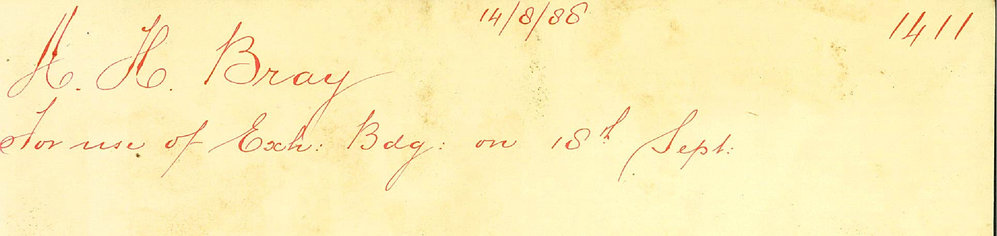 14/8/88
1411
A. H. Bray
For use of Exh: Bdg: on 18th Sept: